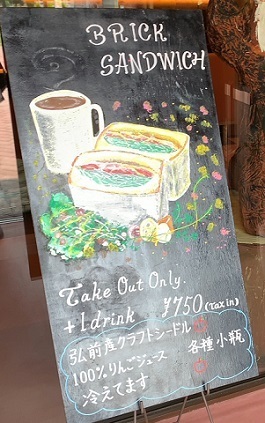 BRICK
SANDWICH
Take Out Only.
+1drink ¥750(Tax in)
弘前産クラフトシードル
100%りんごジュース 各種小瓶
冷えてます